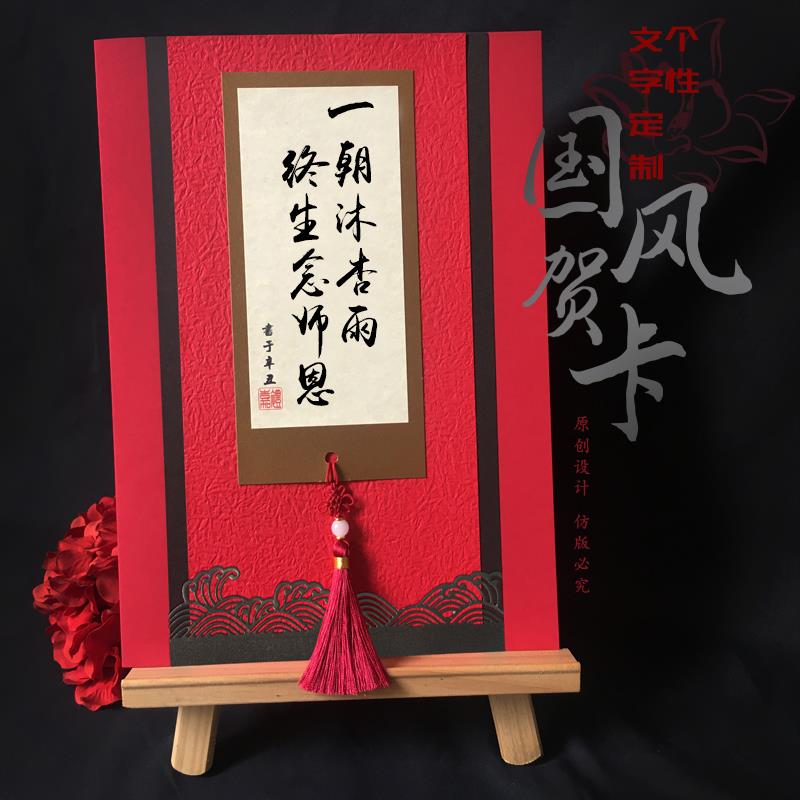 一朝沐杏雨
终生念师恩
書于辛丑
个性
文字定制
国风
贺卡
原创设计 仿版必究